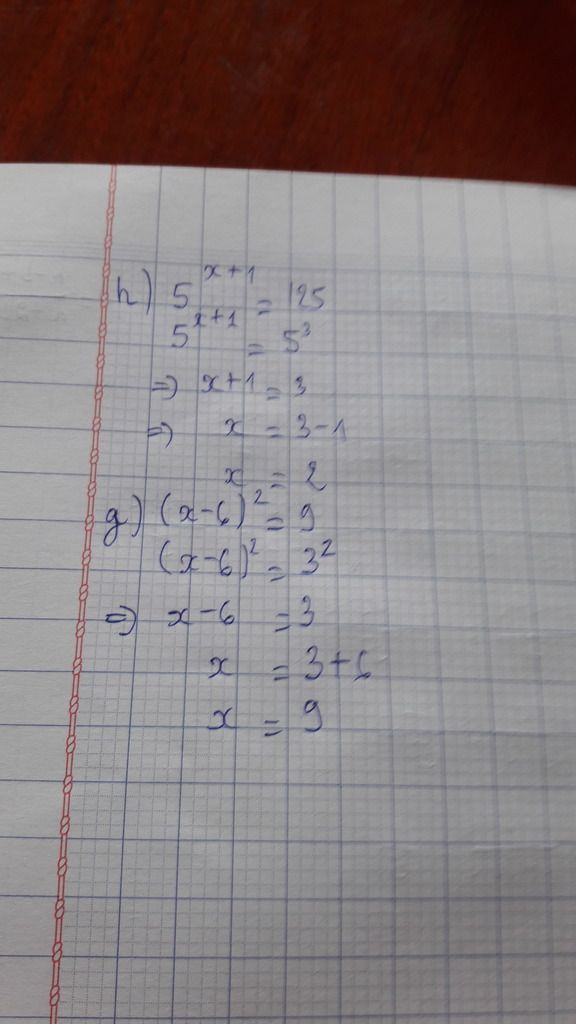 h) 5^(x+1) = 125
5^(x+1) = 5³
=> x+1 = 3
=> x = 3-1
x = 2
g) (x-6)² = 9
(x-6)² = 3²
=> x-6 = 3
x = 3+6
x = 9